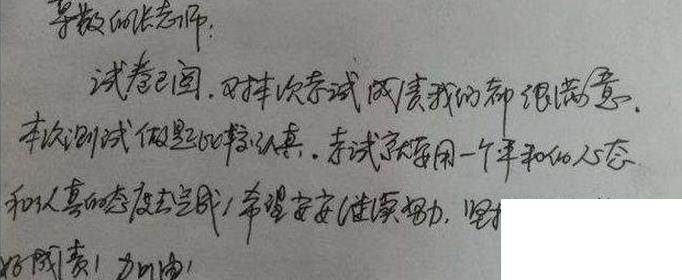 尊敬的张老师:
试卷已阅,对本次考试成绩我们都很满意。
本次测试做题比较认真。考试就要用一个平和的心态
和认真的态度去完成!希望安安继续努力,坚持
好成绩!加油!